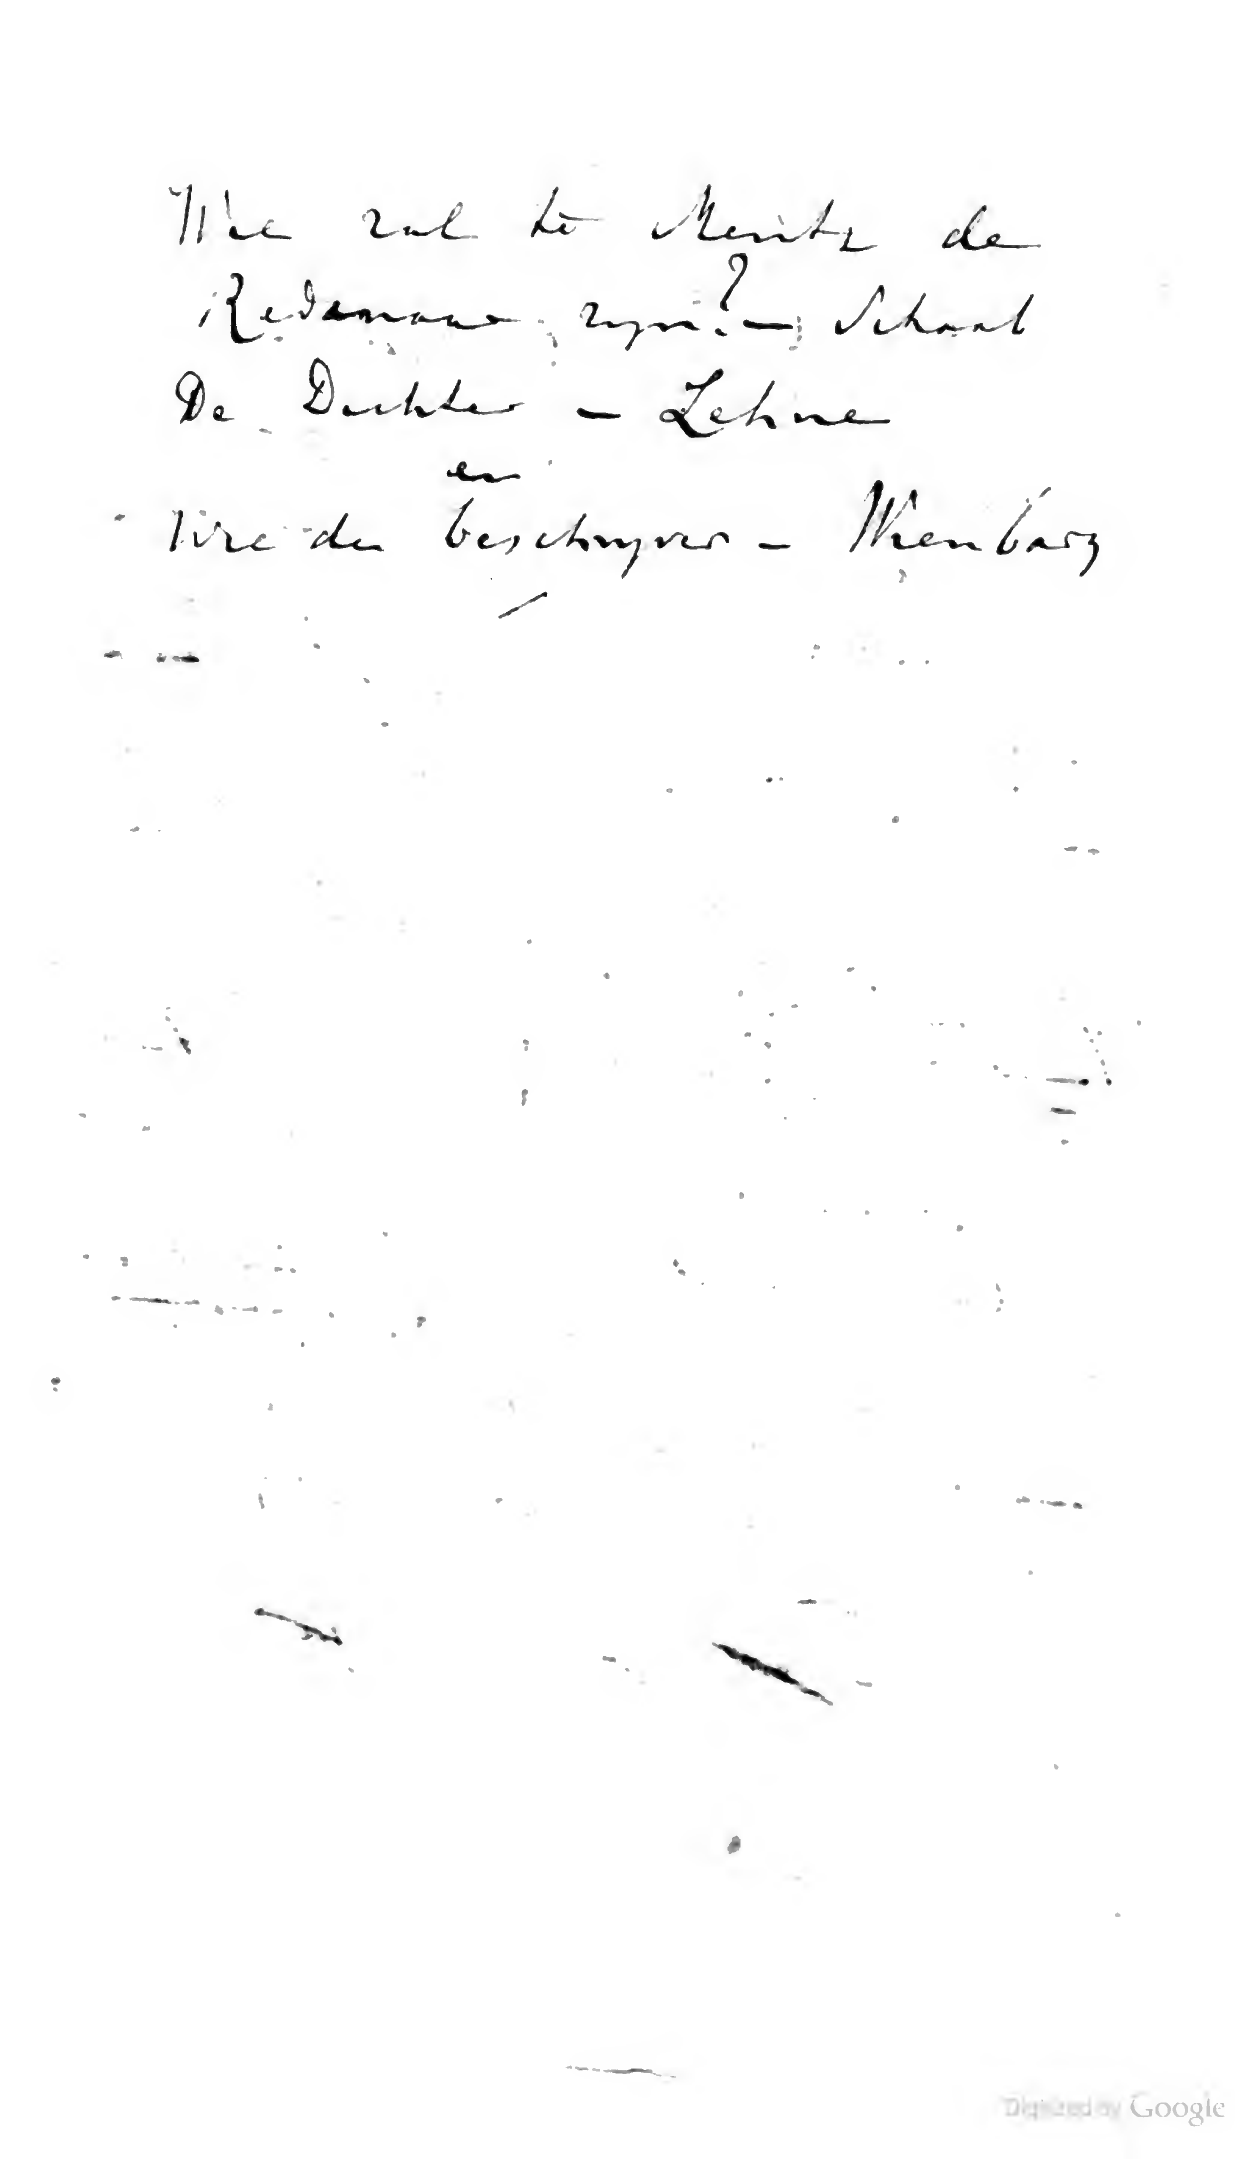 Wie zal te Mentz de
Redenaar zyn? – Schaab
De Dichter – Lehne
en
Wie de beschryver – Wienbarg
Digitized by Google